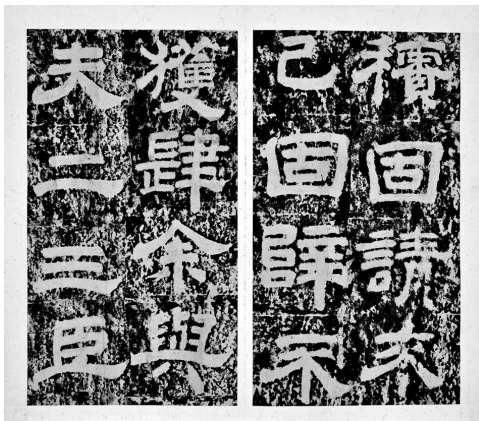 積固請不
已固辭不
獲肆余與
夫二三臣